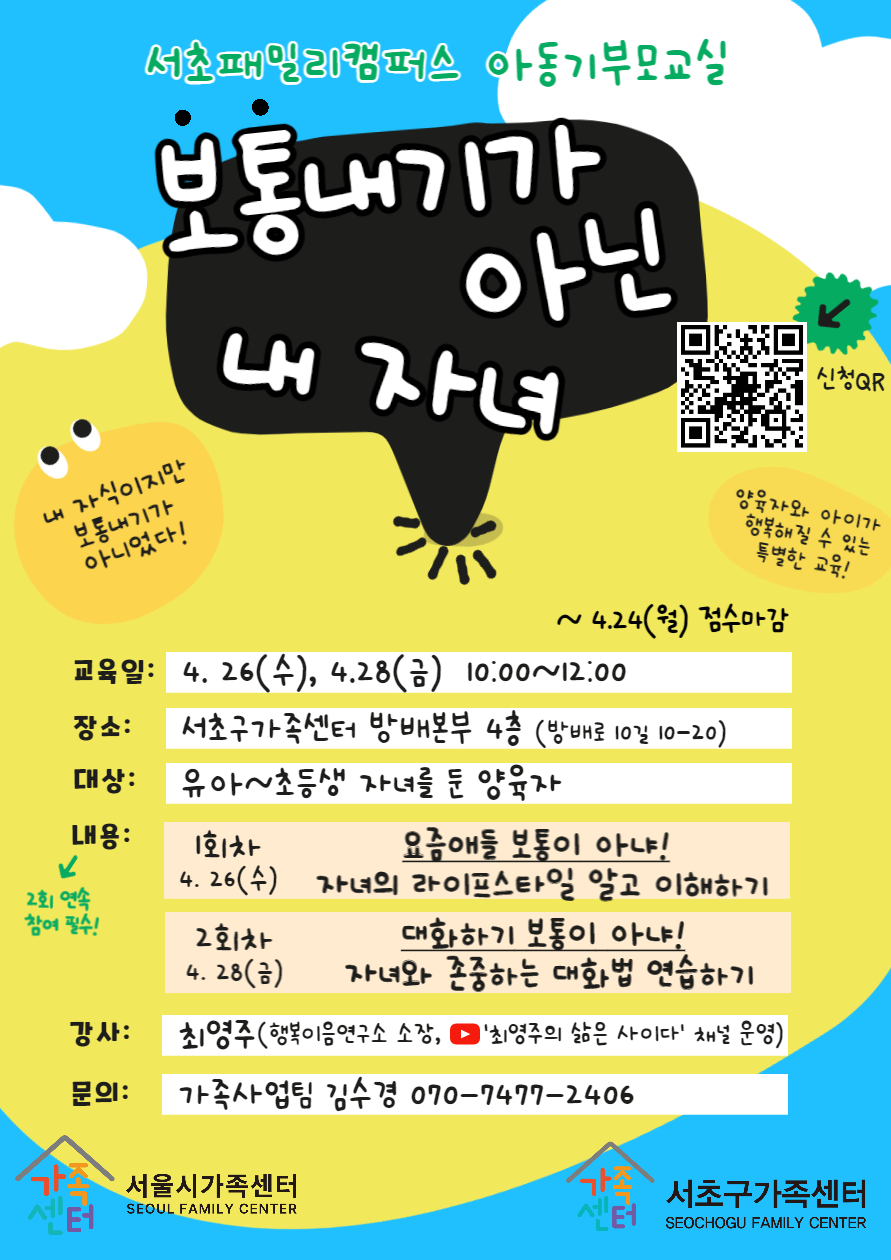 서초패밀리캠퍼스 아동기부모교실
보통내기가
아닌
내 자녀
신청QR
내 자식이지만
보통내기가
아니었다!
양육자와 아이가
행복해질 수 있는
특별한 교육!
~ 4.24(월) 접수마감
교육일: 4. 26(수), 4.28(금) 10:00~12:00
장소: 서초구가족센터 방배본부 4층 (방배로 10길 10-20)
대상: 유아~초등생 자녀를 둔 양육자
내용:
2회 연속
참여 필수!
1회차 요즘애들 보통이 아냐!
4. 26(수) 자녀의 라이프스타일 알고 이해하기
2회차 대화하기 보통이 아냐!
4. 28(금) 자녀와 존중하는 대화법 연습하기
강사: 최영주(행복이음연구소 소장, '최영주의 삶은 사이다' 채널 운영)
문의: 가족사업팀 김수경 070-7477-2406
가족
센터
서울시가족센터
SEOUL FAMILY CENTER
가족
센터
서초구가족센터
SEOCHOGU FAMILY CENTER